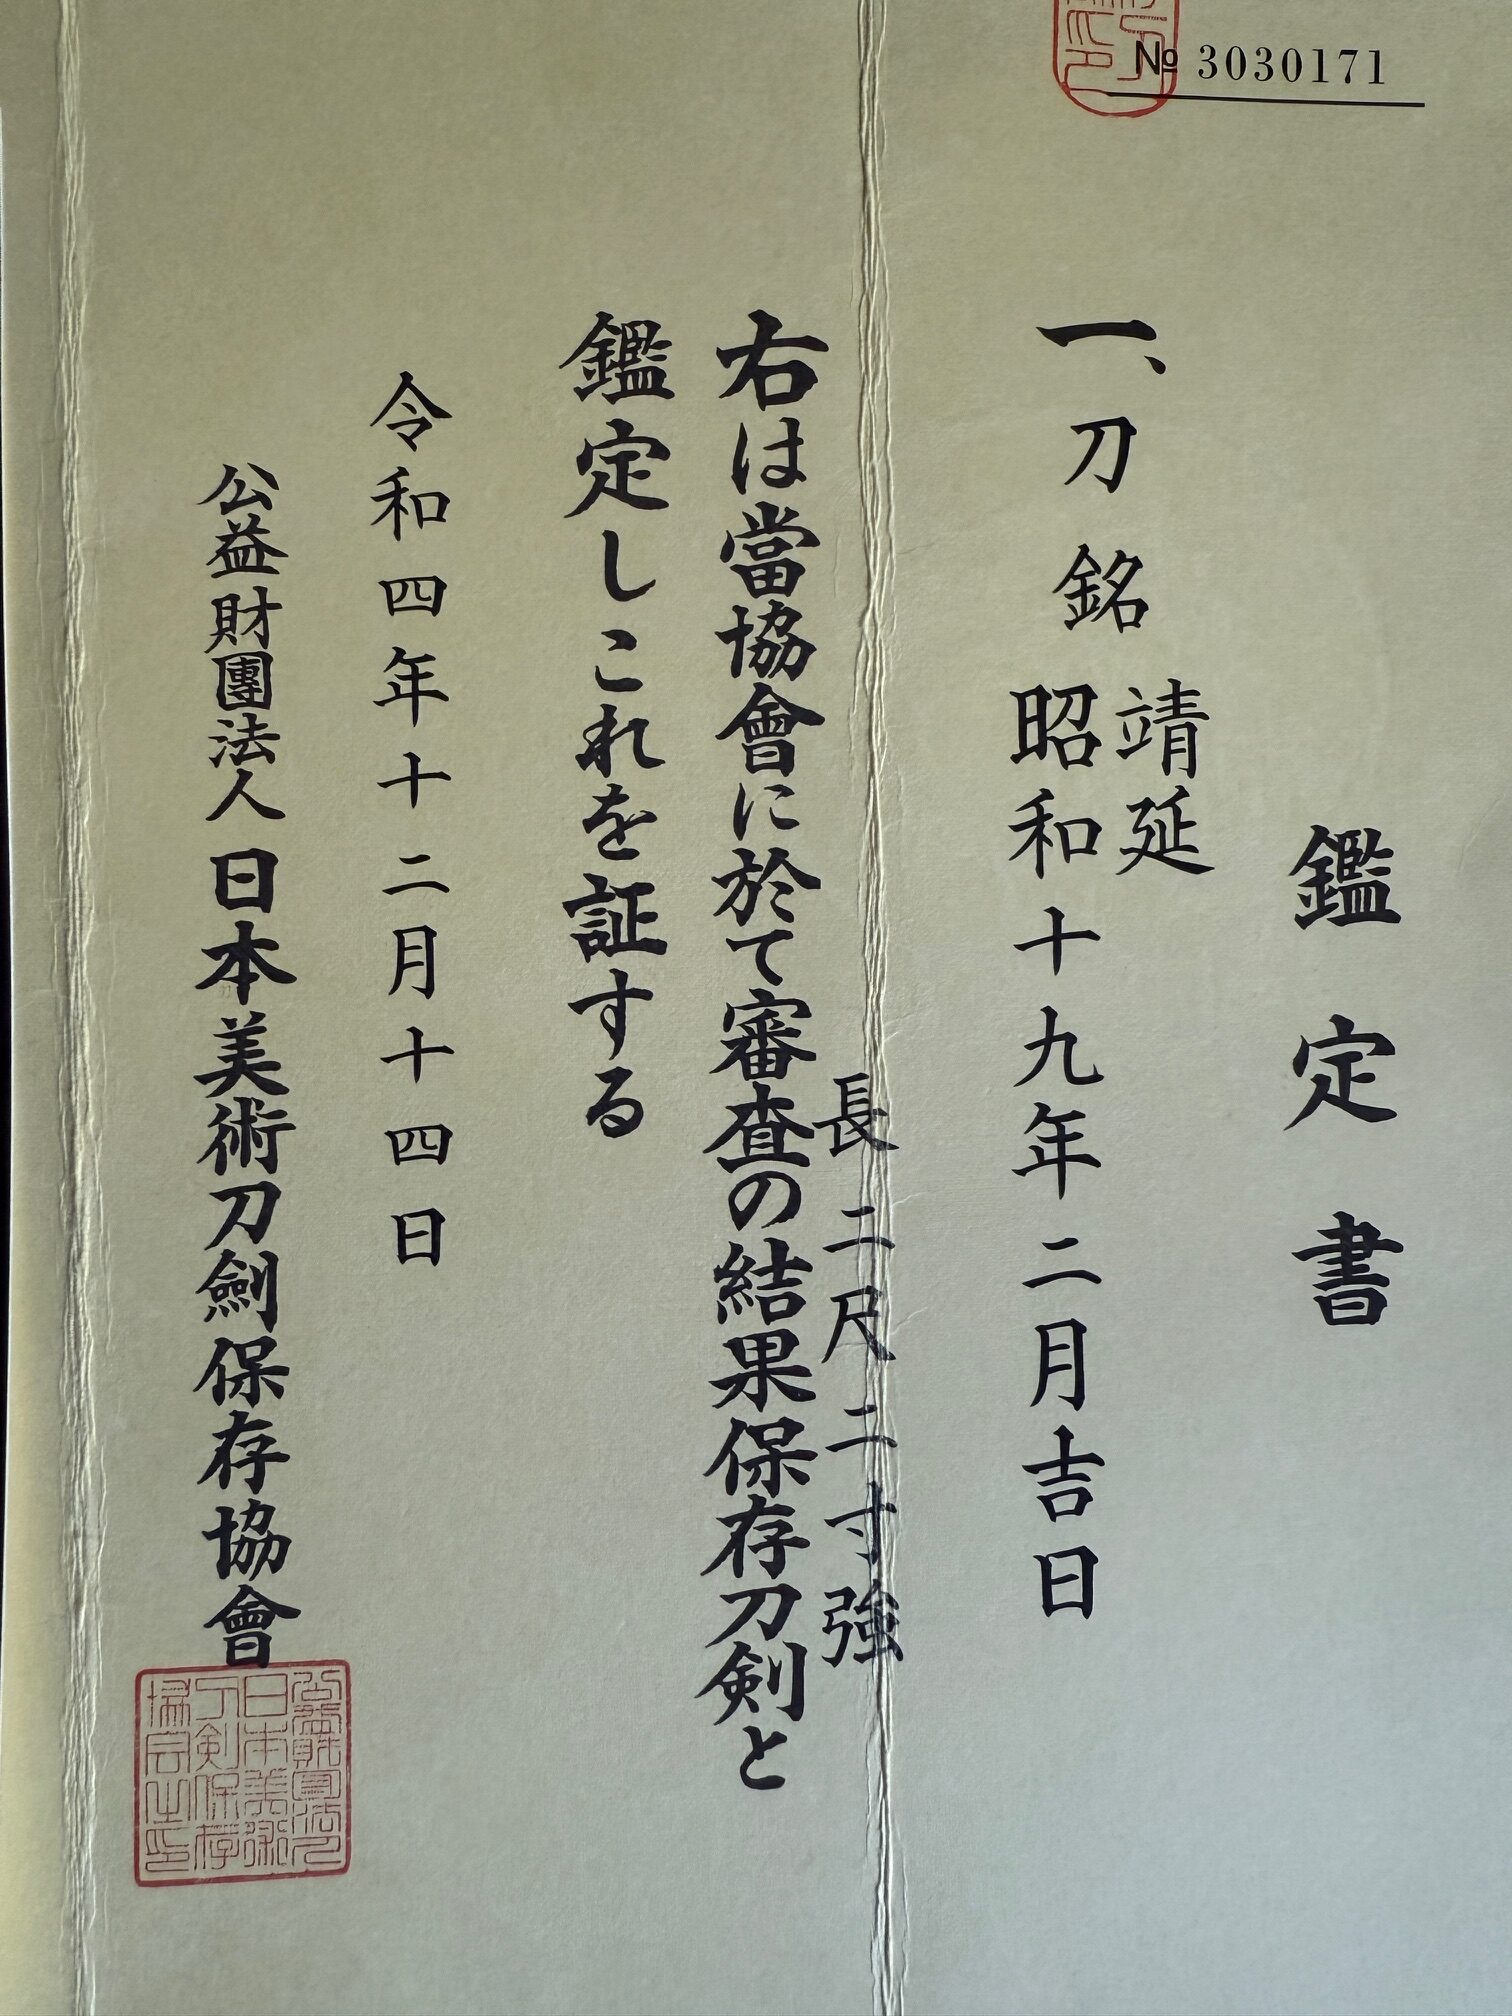 № 3030171
鑑定書
一、刀 銘 靖延
昭和十九年二月吉日
長 二尺二寸強
右は當協會に於て審査の結果保存刀剣と
鑑定しこれを証する
令和四年十二月十四日
公益財團法人 日本美術刀劍保存協會
公益財團法人
日本美術
刀剣保存
協会之印